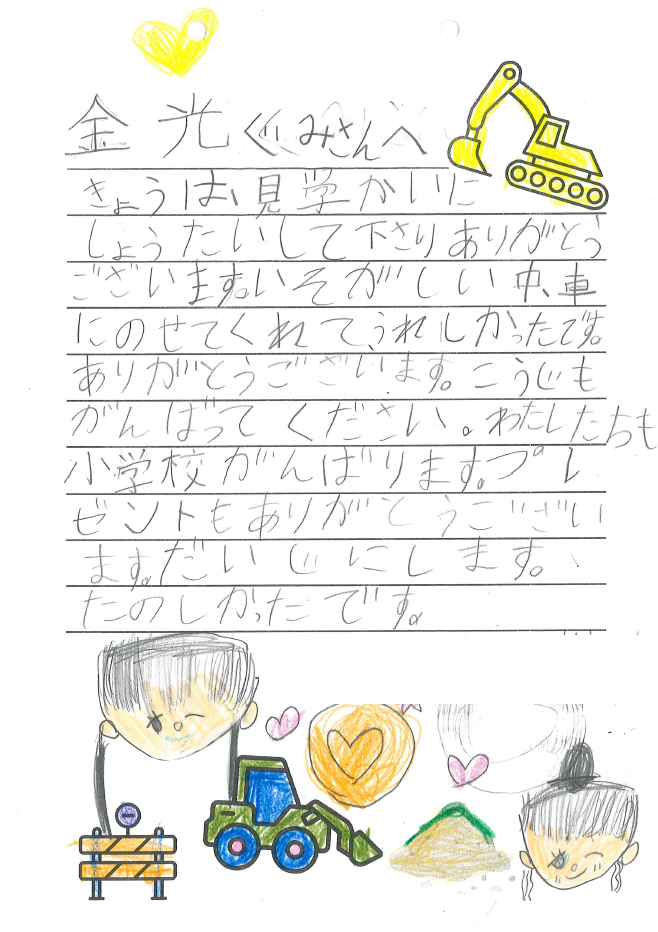 金光ぐみさんへ
きょうは、見学かいに
しょうたいして下さりありがとう
ございます。いそがしい中、車
にのせてくれてうれしかったです。
ありがとうございます。こうじも
がんばってください。わたしたちも
小学校がんばります。プレ
ゼントもありがとうござい
ます。だいじにします。
たのしかったです。